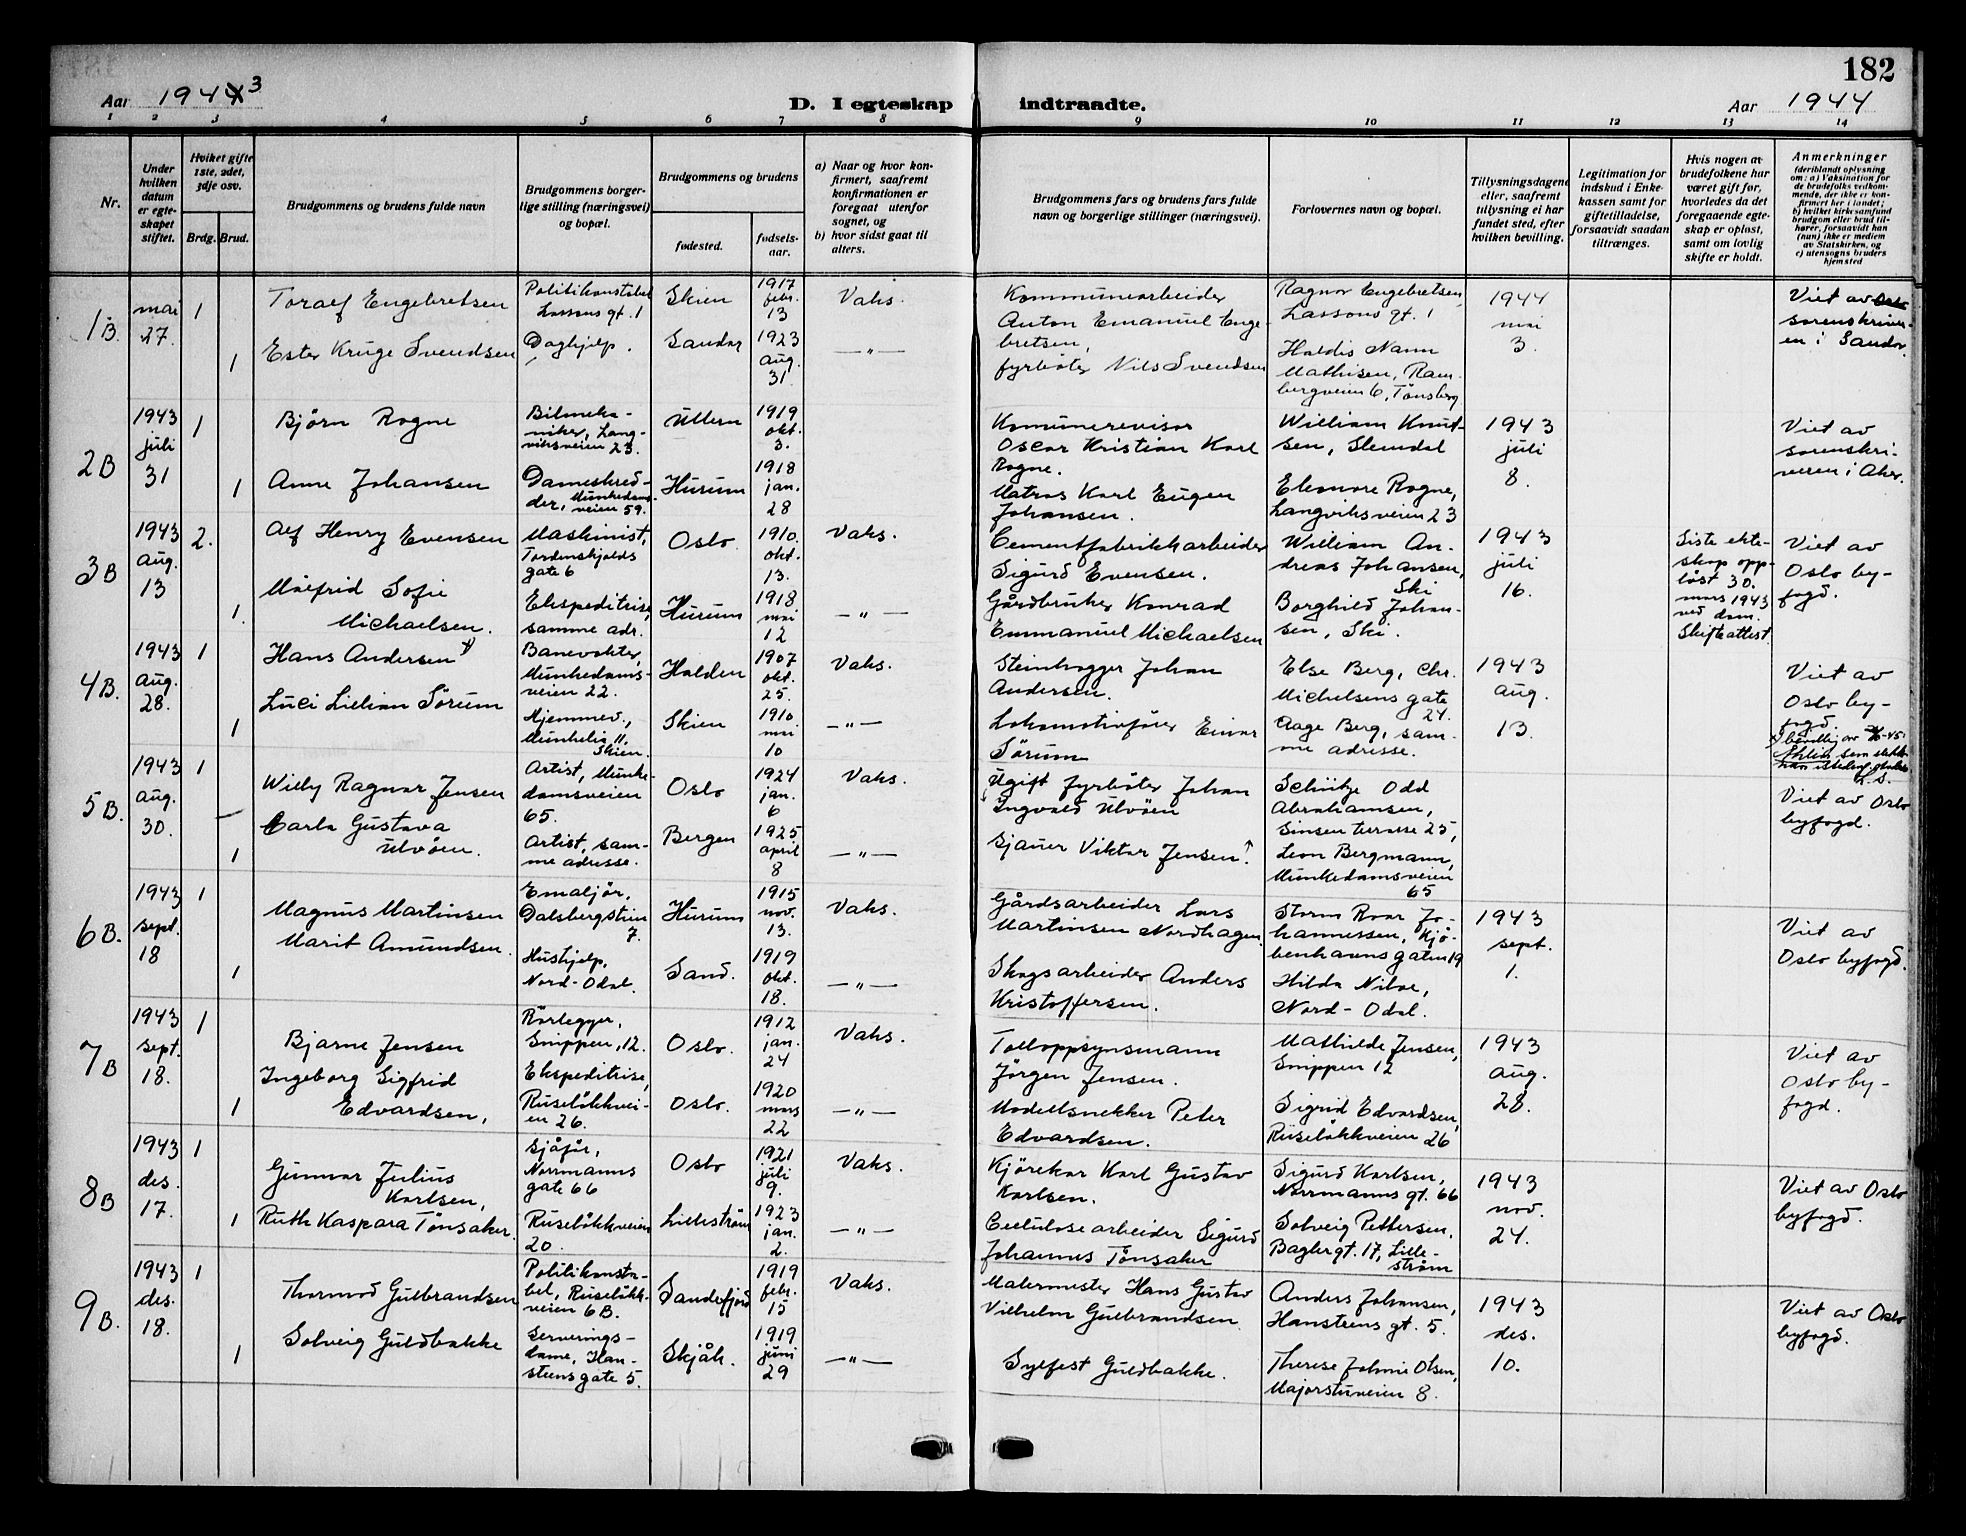 182
Aar 1944 3
D. I egteskap indtraadte.
Aar 1944
1 2 3 4 5 6 7 8 9 10 11 12 13 14
Nr.
Under hvilken datum er egteskapet stiftet.
Hvilket gifte 1ste, 2det, 3dje osv.
Brdg. Brud.
Brudgommens og brudens fulde navn
Brudgommens borgerlige stilling (næringsvei) og bopæl.
Brudgommens og brudens
fødested. fødselsaar.
a) Naar og hvor konfirmert, saafremt konfirmationen er foregaat utenfor sognet, og
b) hvor sidst gaat til alters.
Brudgommens fars og brudens fars fulde navn og borgerlige stillinger (næringsvei).
Forlovernes navn og bopæl.
Tillysningsdagene eller, saafremt tillysning ei har fundet sted, efter hvilken bevilling.
Legitimation for indskud i Enkekassen samt for giftetilladelse, forsaavidt saadan tiltrænges.
Hvis nogen av brudefolkene har været gift før, hvorledes da det foregaaende egteskap er opløst, samt om lovlig skifte er holdt.
Anmerkninger
(deriblandt oplysning om: a) Vaksination for de brudefolks vedkommende, der ikke er konfirmert her i landet;
b) hvilket kirkesamfund brudgom eller brud tilhører, forsaavidt han (hun) ikke er medlem av Statskirken, og
c) utensogns bruders hjemsted
1B
mai 27
1
Toralf Engebretsen
Politikonstabel Lassons gt. 1
Skien
1917 febr. 13
Vaks.
Kommunearbeider Anton Emanuel Engebretsen,
Ragnar Engebretsen, Lassons gt. 1
1944 mai 3.
Viet av sorenskriveren i Sandar.
1
Ester Kruge Svendsen
Daghjelp.
Sandar
1923 aug. 31.
— " —
fyrbøter Nils Svendsen
Haldis Nann Mathisen, Rambergveien 6, Tønsberg
2B
1943 juli 31
1
Bjørn Rogne
Bilmekaniker, Langviksveien 23.
Ullern
1919 okt. 3.
Kommunerevisor Oscar Kristian Karl Rogne.
William Knutsen, Slemdal
1943 juli 8.
Viet av sorenskriveren i Aker.
1
Anne Johansen
Dameskredder, Munkedamsveien 59.
Hurum
1918 jan. 28
Matros Karl Eugen Johansen.
Eleonore Rogne, Langviksveien 23
3B
1943 aug. 13
2.
Alf Henry Evensen
Maskinist, Tordenskjolds gate 6
Oslo
1910. okt. 13.
Vaks.
Cementfabrikkarbeider Sigurd Evensen.
William Andreas Johansen, Ski
1943 juli 16.
Siste ekteskap oppløst 30. mars 1943 ved dom. Skifteattest.
Viet av Oslo byfogd.
1.
Målfrid Sofie Michaelsen.
Ekspeditrise, samme adr.
Hurum
1918 mai 12
— " —
Gårdbruker Konrad Emmanuel Michaelsen
Borghild Johansen, Ski.
4B.
1943 aug. 28.
1
Hans Andersen
Banevokter, Munkedamsveien 22.
Halden
1907 okt. 25.
Vaks.
Steinhogger Johan Andersen.
Else Berg, Chr. Michelsens gate 24.
1943 aug. 13.
Viet av Oslo byfogd.
1
Luci Lilian Sørum
Hjemmev., Munkelia 11. Skien.
Skien
1910 mai 10
— " —
Lokomotivfører Einar Sørum
Aage Berg, samme adresse.
5B.
1943 aug. 30.
1
Willy Ragnar Jensen
Artist, Munkedamsveien 65.
Oslo
1924 jan. 6
Vaks.
Ugift fyrbøter Johan Ingvald Ulvøen
Schütze Odd Abrahamsen, Sinsen terrasse 25,
Viet av Oslo byfogd.
1
Carla Gustava Ulvøen.
Artist, samme adresse.
Bergen
1925 april 8
— " —
Sjauer Viktor Jensen.
Leon Bergmann, Munkedamsveien 65
6B.
1943 sept. 18
1
Magnus Martinsen
Emaljør, Dalsbergstien 7.
Hurum
1915 nov. 13.
Vaks.
Gårdsarbeider Lars Martinsen Nordhagen
Storm Roar Johannessen, Kjøbenhavnsgaten 19
1943 sept. 1.
Viet av Oslo byfogd.
1
Marit Amundsen.
Hushjelp, Nord-Odal.
Sand.
1919 okt. 18.
— " —
Skogsarbeider Anders Kristoffersen.
Hilda Niloe, Nord-Odal.
7B
1943 sept. 18.
1
Bjarne Jensen
Rørlegger, Snippen, 12.
Oslo.
1912 jan. 24
Vaks.
Tolloppsynsmann Jørgen Jensen.
Mathilde Jensen, Snippen 12
1943 aug. 28.
Viet av Oslo byfogd.
1
Ingeborg Sigfrid Edvardsen,
Ekspeditrise, Ruseløkkveien 26.
Oslo.
1920 mars 22
— " —
Modellsnekker Peter Edvardsen.
Sigrid Edvardsen, Ruseløkkveien 26
8B
1943 des. 17.
1
Gunnar Julius Karlsen,
Sjåfør, Normanns gate 66
Oslo
1921 juli 9.
Vaks.
Kjørekar Karl Gustav Karlsen.
Sigurd Karlsen, Normanns gt. 66
1943 nov. 24.
Viet av Oslo byfogd.
1
Ruth Kaspara Tønsaker.
Ruseløkkveien 20.
Lillestrøm
1923 jan. 2.
— " —
Cellulosearbeider Sigurd Johannes Tønsaker
Solveig Pettersen, Baglergt. 17, Lillestrøm
9B.
1943 des. 18.
1
Thormod Gulbrandsen
Politikonstabel, Ruseløkkveien 6B.
Sandefjord
1919 febr. 15
Vaks.
Malermester Hans Gustav Vilhelm Gulbrandsen.
Anders Johansen, Hansteens gt. 5.
1943 des. 10.
Viet av Oslo byfogd.
1
Solveig Guldbakke
Serveringsdame, Hansteensgate 5.
Skjåk.
1919 juni 29
— " —
Sylfest Guldbakke.
Therese Johnie Olsen, Majorstuveien 8.